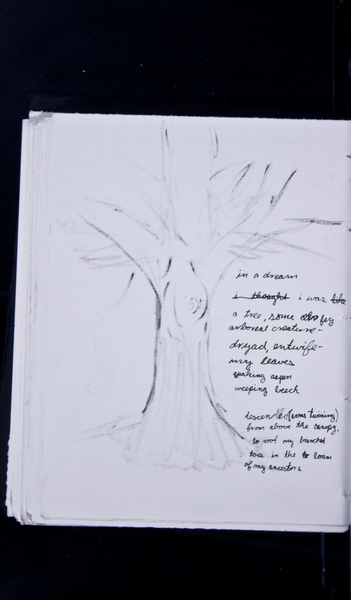 in a dream
i thought i was
a tree, some
arboreal creature -
dryad, entwife -
my leaves
quaking aspen
weeping beech
descended (arms turning)
from above the canopy,
to root my branched
toes in the loam
of my ancestors